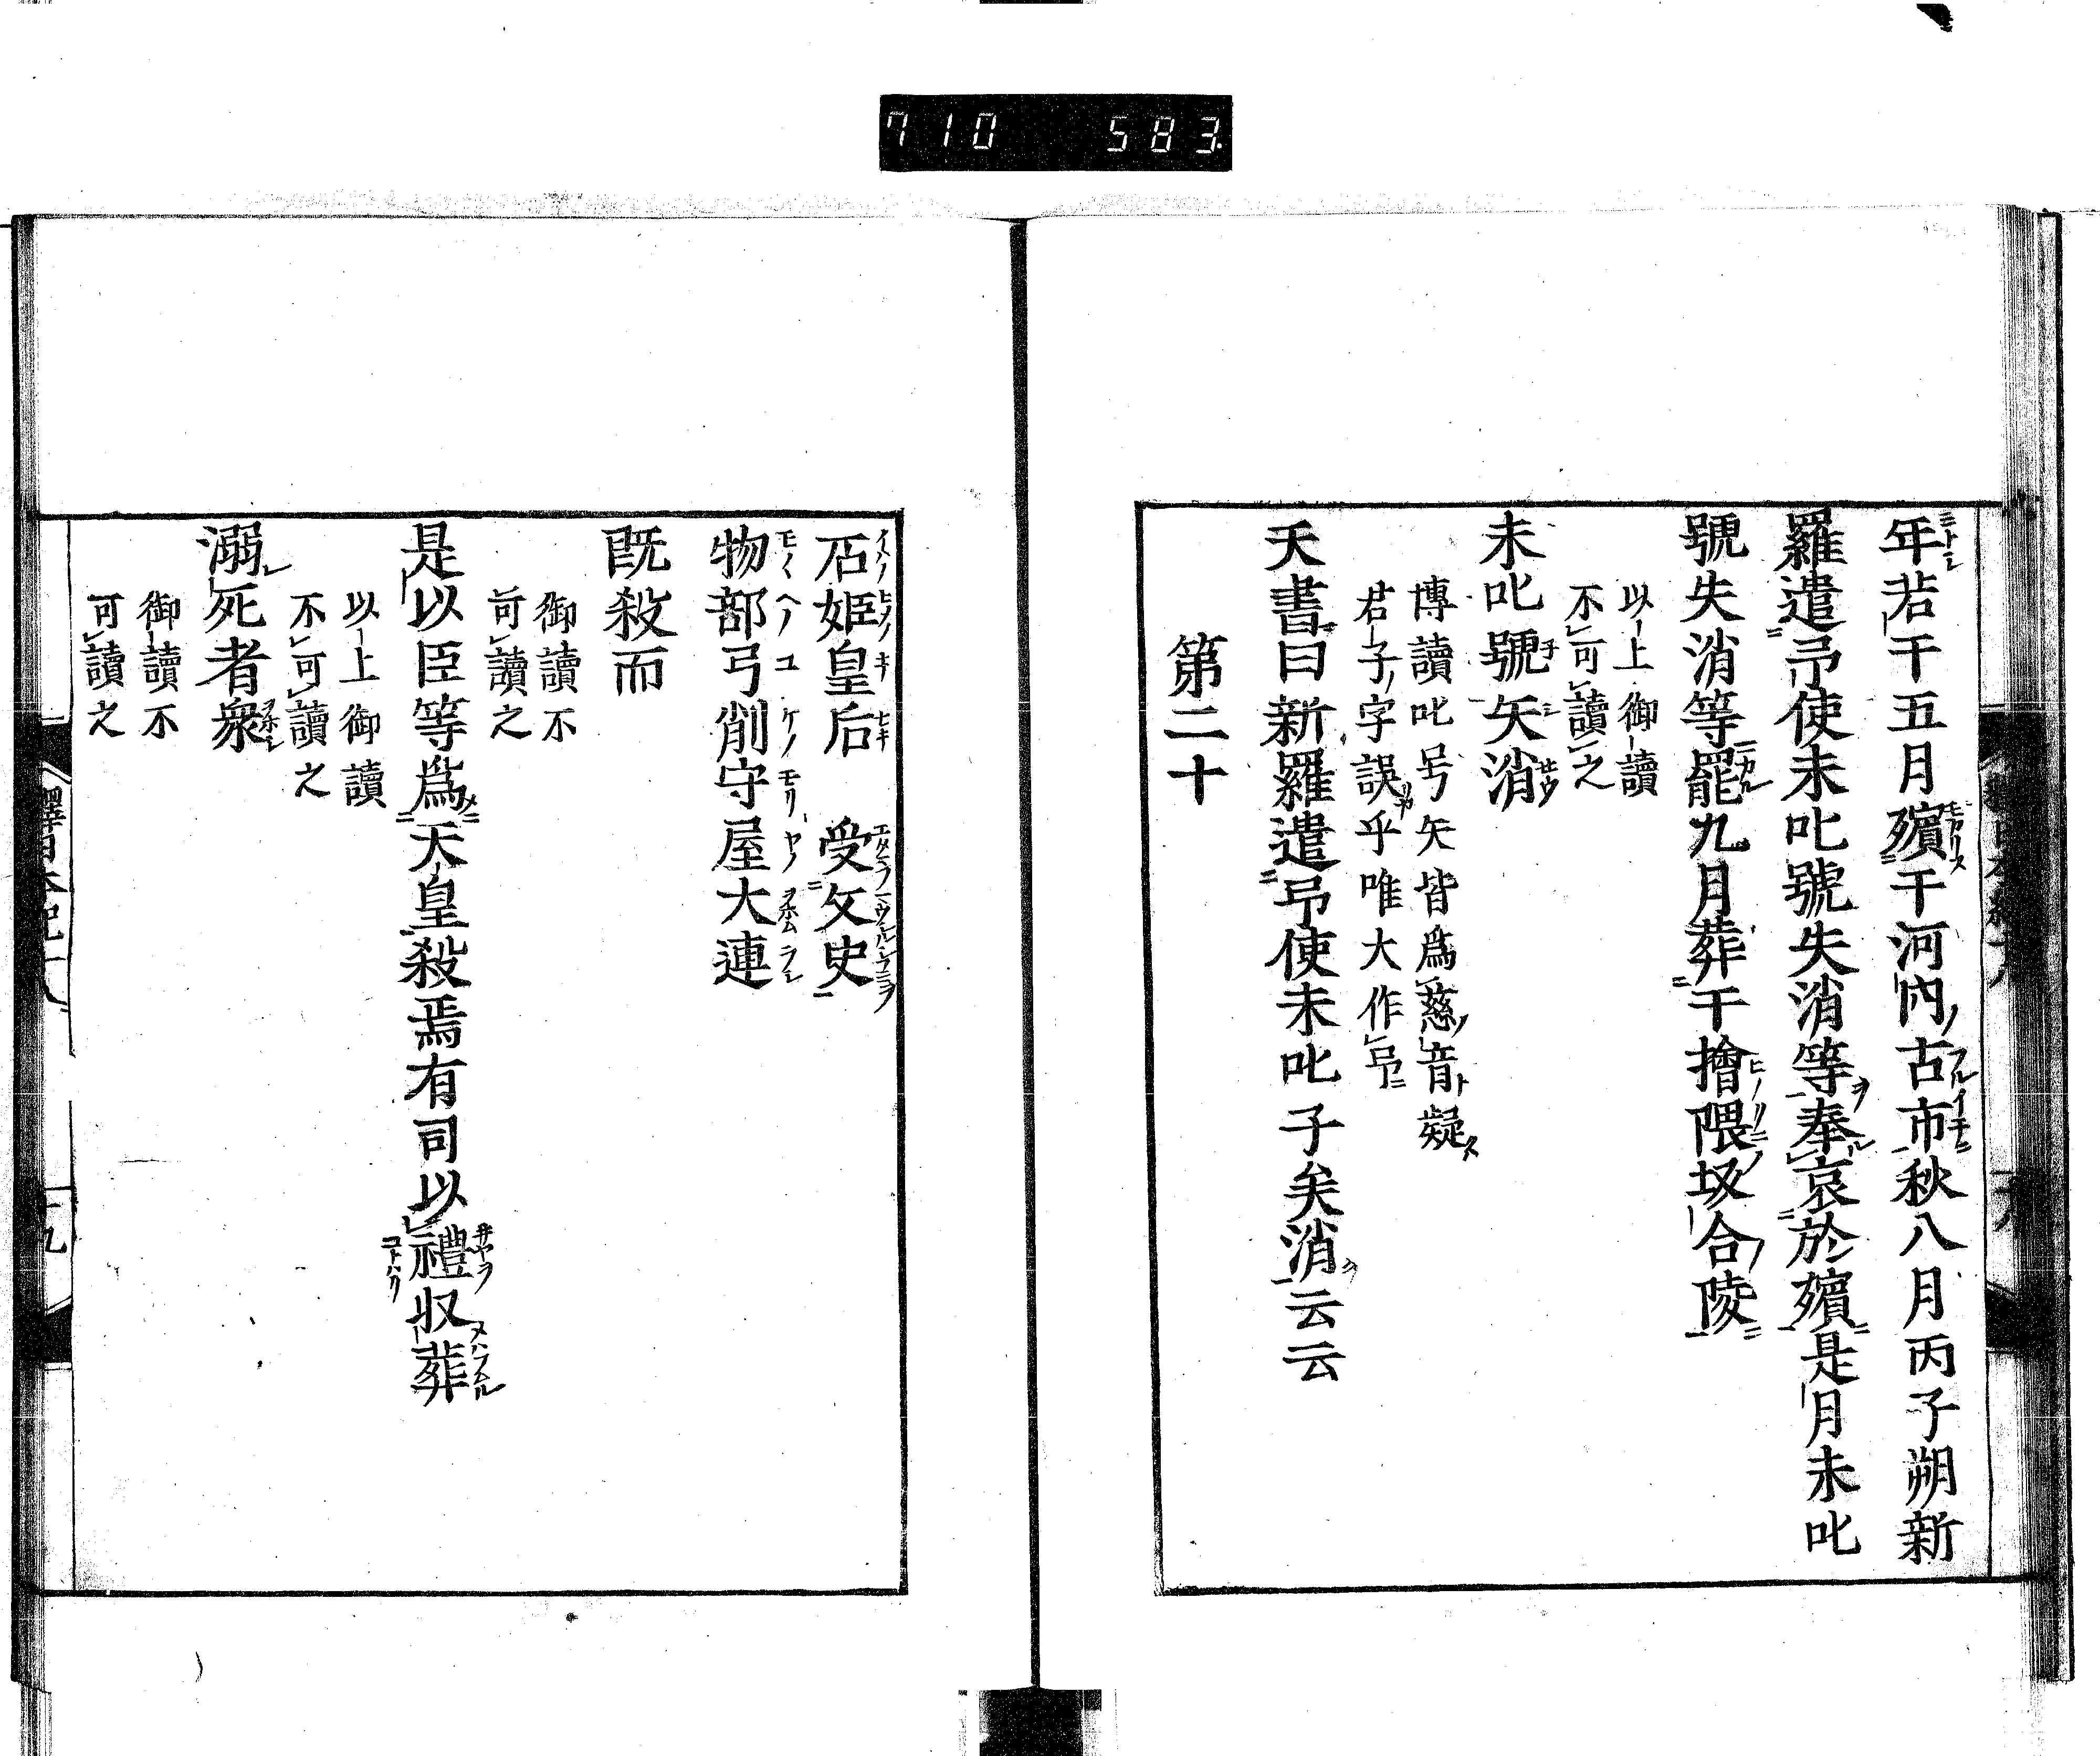 710 583
年若干五月殯于河內古市秋八月丙子朔新
羅遣弔使未叱號失消等奉哀於殯是月未叱
號失消等罷九月葬于檜隈坂合陵
以上御讀
不可讀之
未叱號矢消
博讀叱号矢皆爲慈音疑
若子字誤乎唯大作弔
天書曰新羅遣弔使未叱子矣消云云
第二十
石姬皇后 受文史
物部弓削守屋大連
既殺而
御讀不
可讀之
是以臣等爲天皇殺焉有司以禮収葬
以上御讀
不可讀之
溺死者衆
御讀不
可讀之
釋日本紀十八
十九